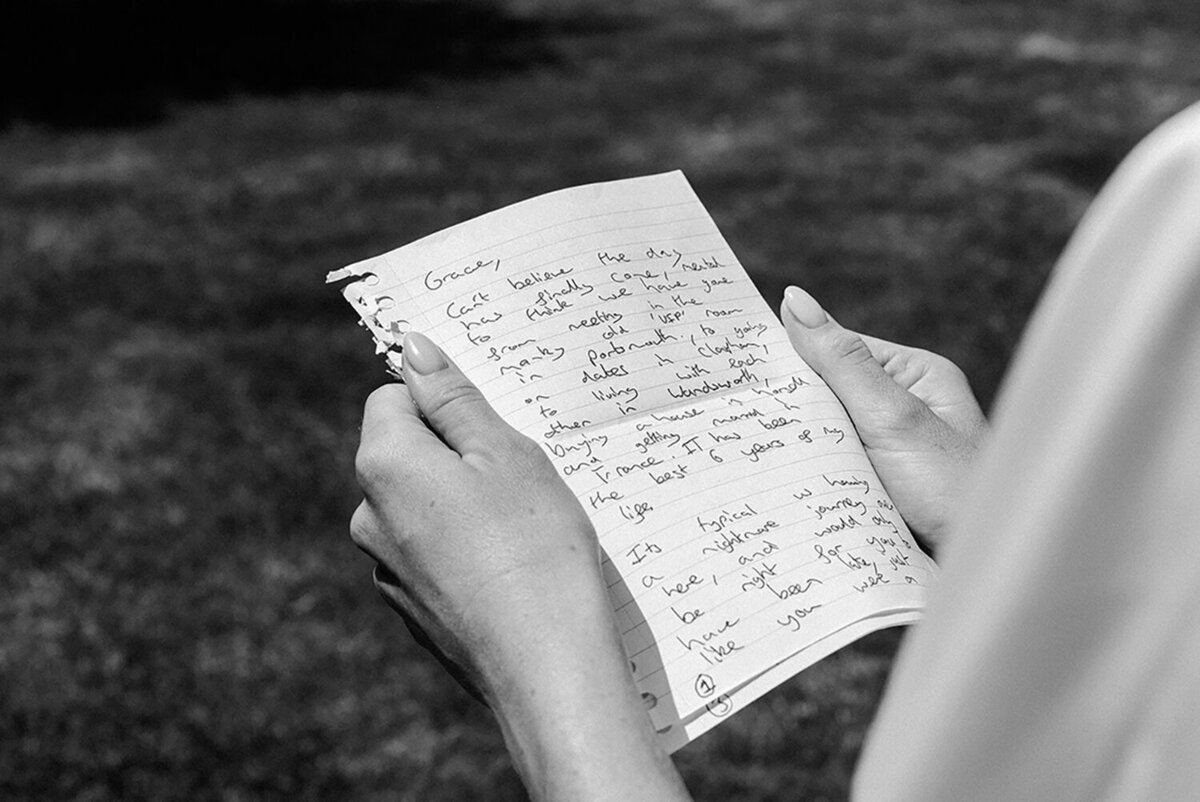 Grace,
Can't believe the day
has finally come, mental
to think we have gone
from meeting in the
manky old 'VIP' room
in Portsmouth, to going
on dates in Clapham,
to living with each
other in Wandsworth,
buying a house in
and getting married in
France. IT has been
the best 6 years of my
life.
Its typical w having
a nightmare journey
here, and would only
be right for you to
have been late, just
like you were a
1
3